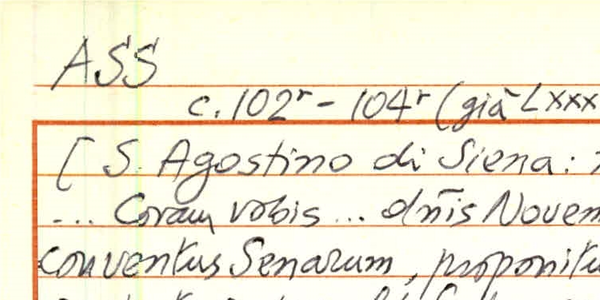 ASS
c. 102r - 104r (già LXXX
[ S. Agostino di Siena:
... Coram vobis ... dn̄is Novem
conventus Senarum, proponitu